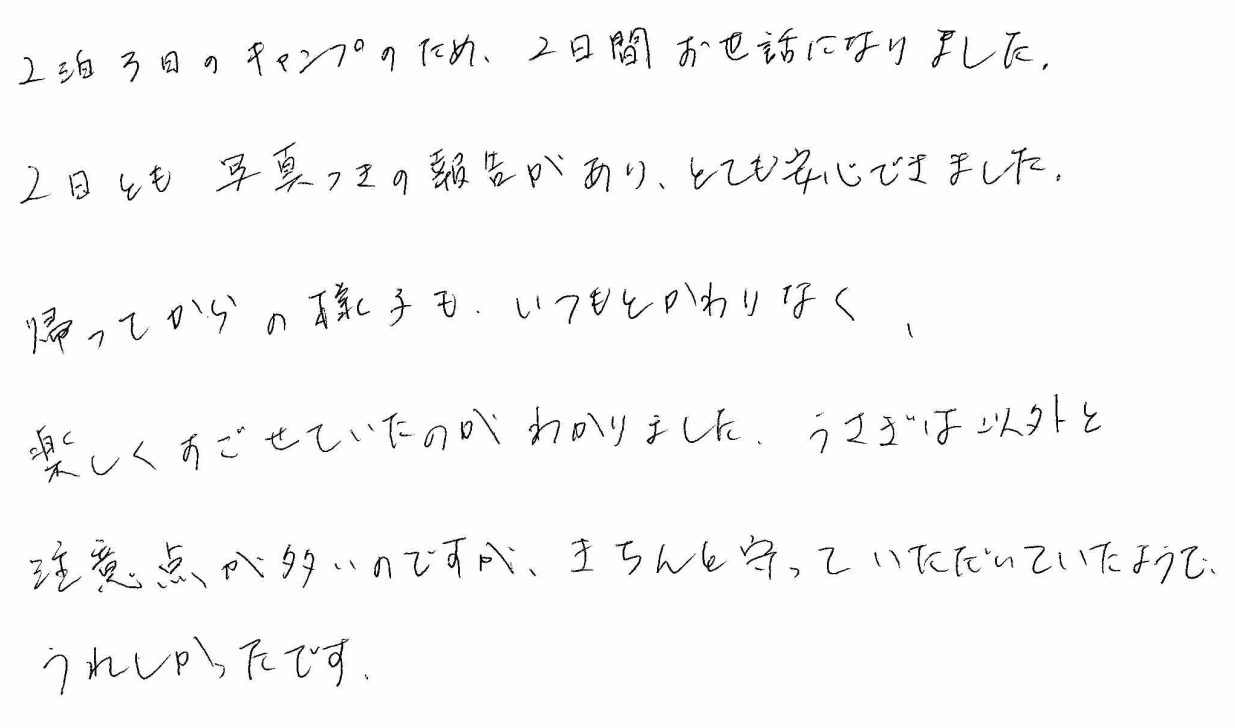 2泊3日のキャンプのため、2日間お世話になりました。
2日とも写真つきの報告があり、とても安心できました。
帰ってからの様子も、いつもとかわりなく、
楽しくすごせていたのがわかりました。うさぎは以外と
注意点が多いのですが、きちんと守っていただいていたようで、
うれしかったです。